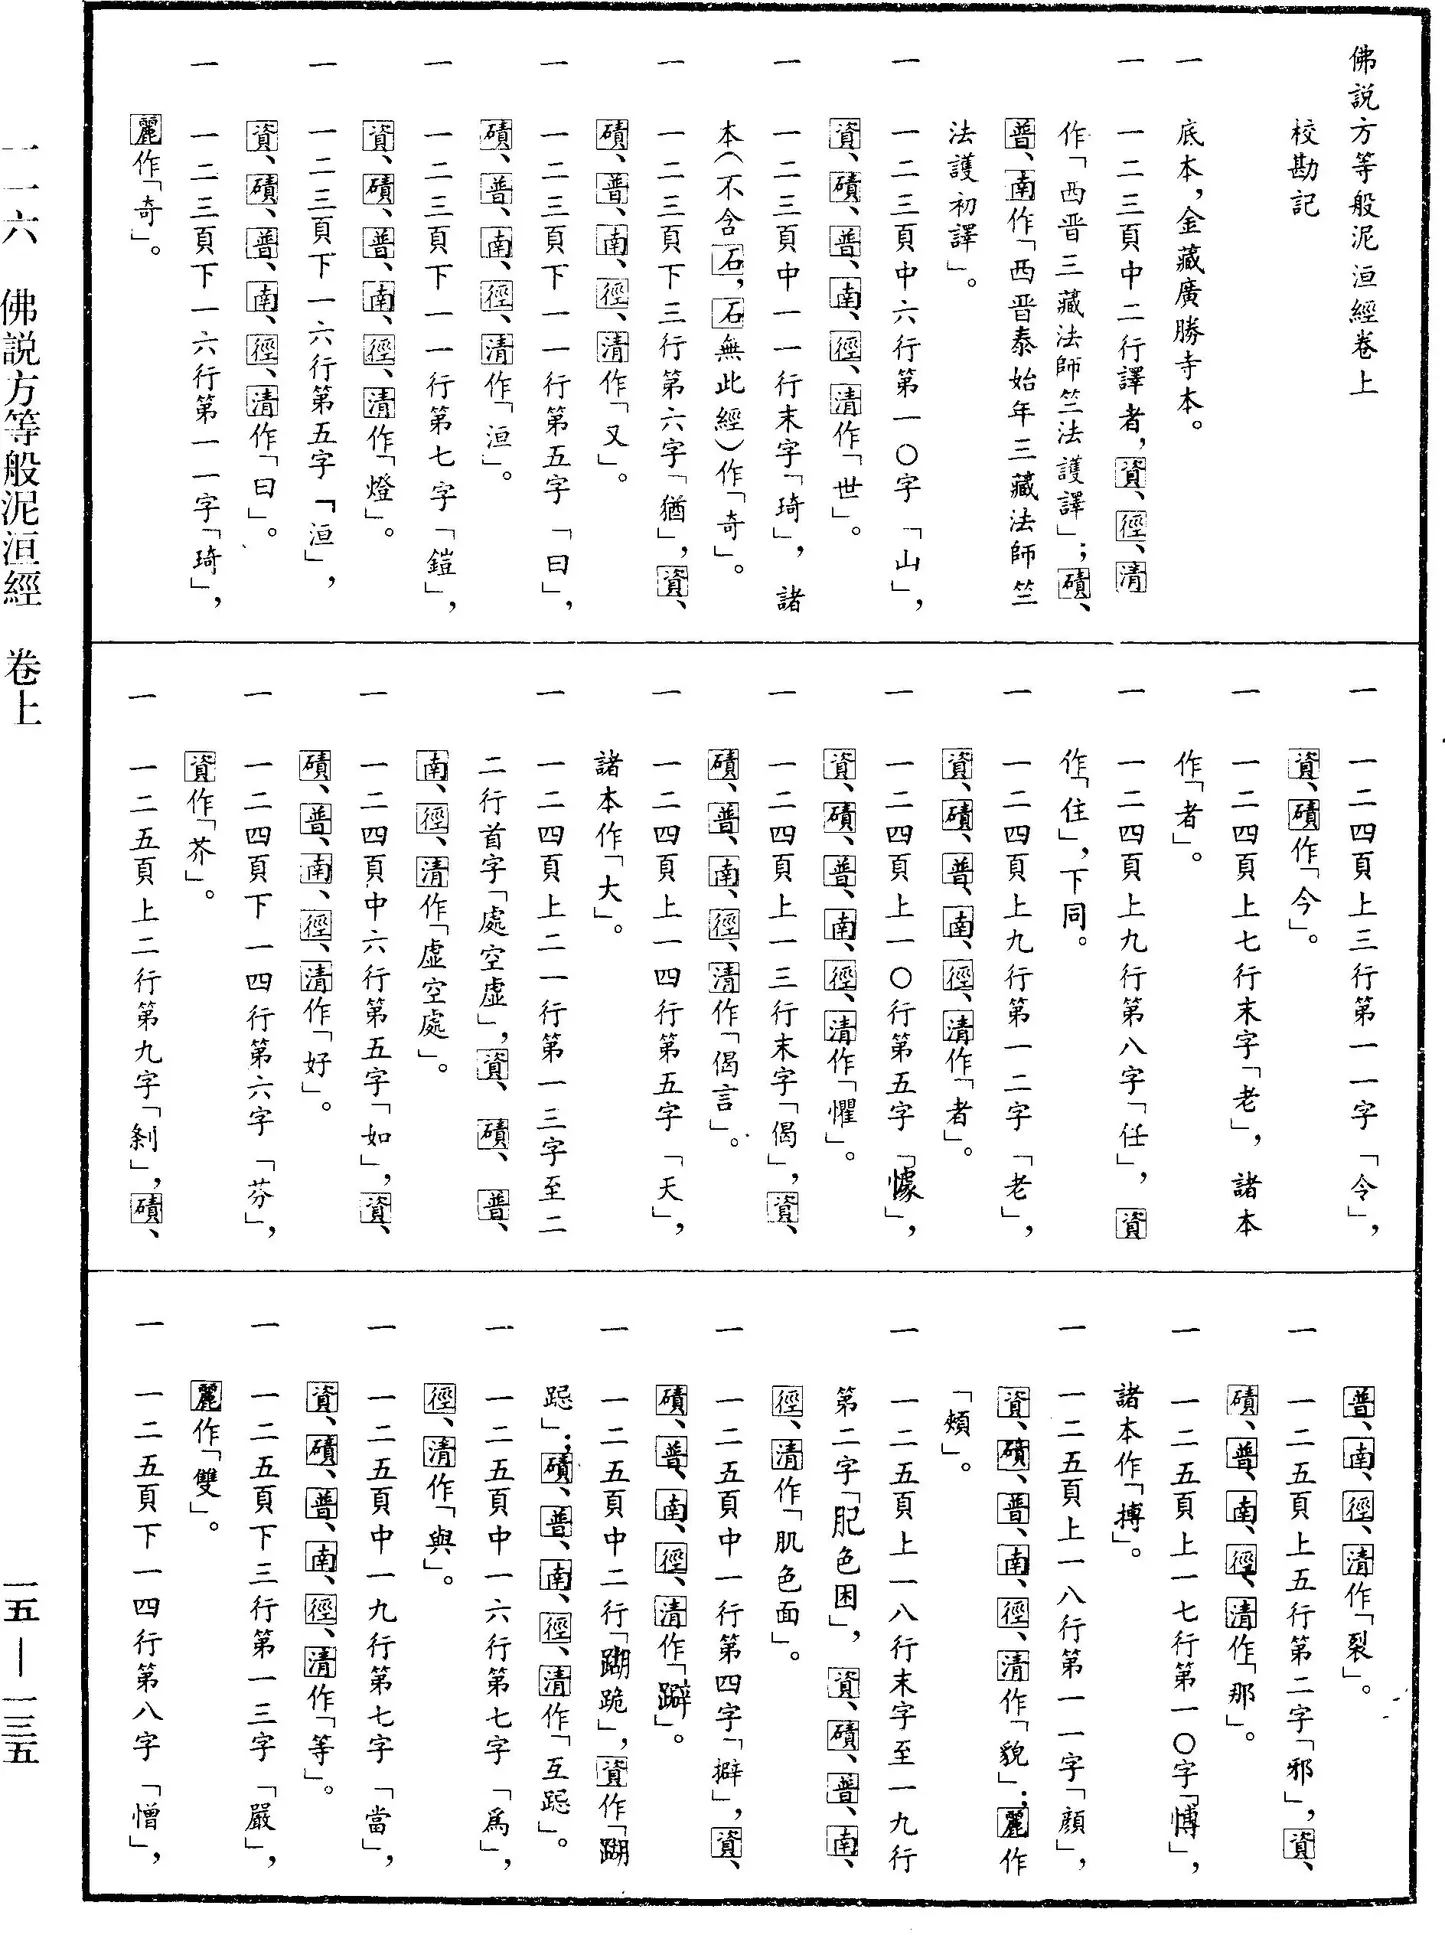 佛説方等般泥洹經卷上
校勘記
一　底本，金藏廣勝寺本。
一　一二三頁中二行譯者，資、徑、清
作「西晋三藏法師竺法護譯」；磧、
普、南作「西晋泰始年三藏法師竺
法護初譯」。
一　一二三頁中六行第一〇字「山」，
資、磧、普、南、徑、清作「世」。
一　一二三頁中一一行末字「琦」，諸
本（不含石，石無此經）作「奇」。
一　一二三頁下三行第六字「猶」，資、
磧、普、南、徑、清作「又」。
一　一二三頁下一一行第五字「曰」，
磧、普、南、徑、清作「洹」。
一　一二三頁下一一行第七字「鎧」，
資、磧、普、南、徑、清作「燈」。
一　一二三頁下一六行第五字「洹」，
資、磧、普、南、徑、清作「曰」。
一　一二三頁下一六行第一一字「琦」，
麗作「奇」。
一　一二四頁上三行第一一字「令」，
資、磧作「今」。
一　一二四頁上七行末字「老」，諸本
作「者」。
一　一二四頁上九行第八字「任」，資
作「住」，下同。
一　一二四頁上九行第一二字「老」，
資、磧、普、南、徑、清作「者」。
一　一二四頁上一〇行第五字「懅」，
資、磧、普、南、徑、清作「懼」。
一　一二四頁上一三行末字「偈」，資、
磧、普、南、徑、清作「偈言」。
一　一二四頁上一四行第五字「天」，
諸本作「大」。
一　一二四頁上二一行第一三字至二
二行首字「處空虛」，資、磧、普、
南、徑、清作「虛空處」。
一　一二四頁中六行第五字「如」，資、
磧、普、南、徑、清作「好」。
一　一二四頁下一四行第六字「芬」，
資作「芥」。
一　一二五頁上二行第九字「剎」，磧、
普、南、徑、清作「裂」。
一　一二五頁上五行第二字「邪」，資、
磧、普、南、徑、清作「那」。
一　一二五頁上一七行第一〇字「慱」，
諸本作「摶」。
一　一二五頁上一八行第一一字「顔」，
資、磧、普、南、徑、清作「貌」；麗作
「頰」。
一　一二五頁上一八行末字至一九行
第二字「肥色困」，資、磧、普、南、
徑、清作「肌色面」。
一　一二五頁中一行第四字「擗」，資、
磧、普、南、徑、清作「躃」。
一　一二五頁中二行「䠒跪」，資作「䠒
跽」；磧、普、南、徑、清作「互跽」。
一　一二五頁中一六行第七字「爲」，
徑、清作「與」。
一　一二五頁中一九行第七字「當」，
資、磧、普、南、徑、清作「等」。
一　一二五頁下三行第一三字「嚴」，
麗作「雙」。
一　一二五頁下一四行第八字「憎」，
一一六　佛説方等般泥洹經　卷上
一五—一三五